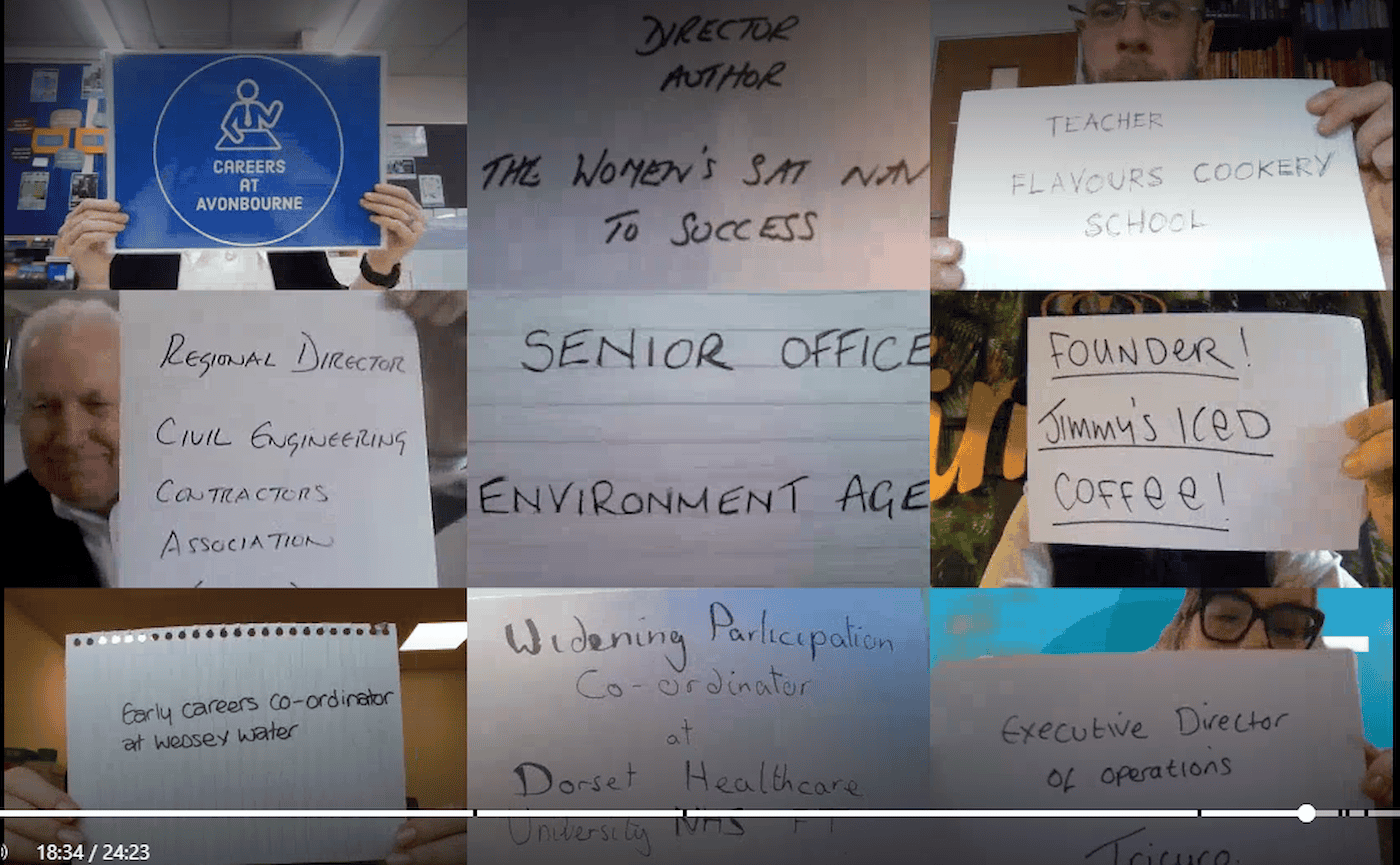 CAREERS
AT
AVONBOURNE
DIRECTOR
AUTHOR
THE WOMEN'S SAT NAV
TO SUCCESS
TEACHER
FLAVOURS COOKERY
SCHOOL
REGIONAL DIRECTOR
CIVIL ENGINEERING
CONTRACTORS
ASSOCIATION
SENIOR OFFICE
ENVIRONMENT AGE
FOUNDER!
JIMMY'S ICED
COFFEE!
Early careers co-ordinator
at Wessex Water
Widening Participation
Co-ordinator
at
Dorset Healthcare
University NHS FT
Executive Director
of operations
Tricuro
18:34 / 24:23